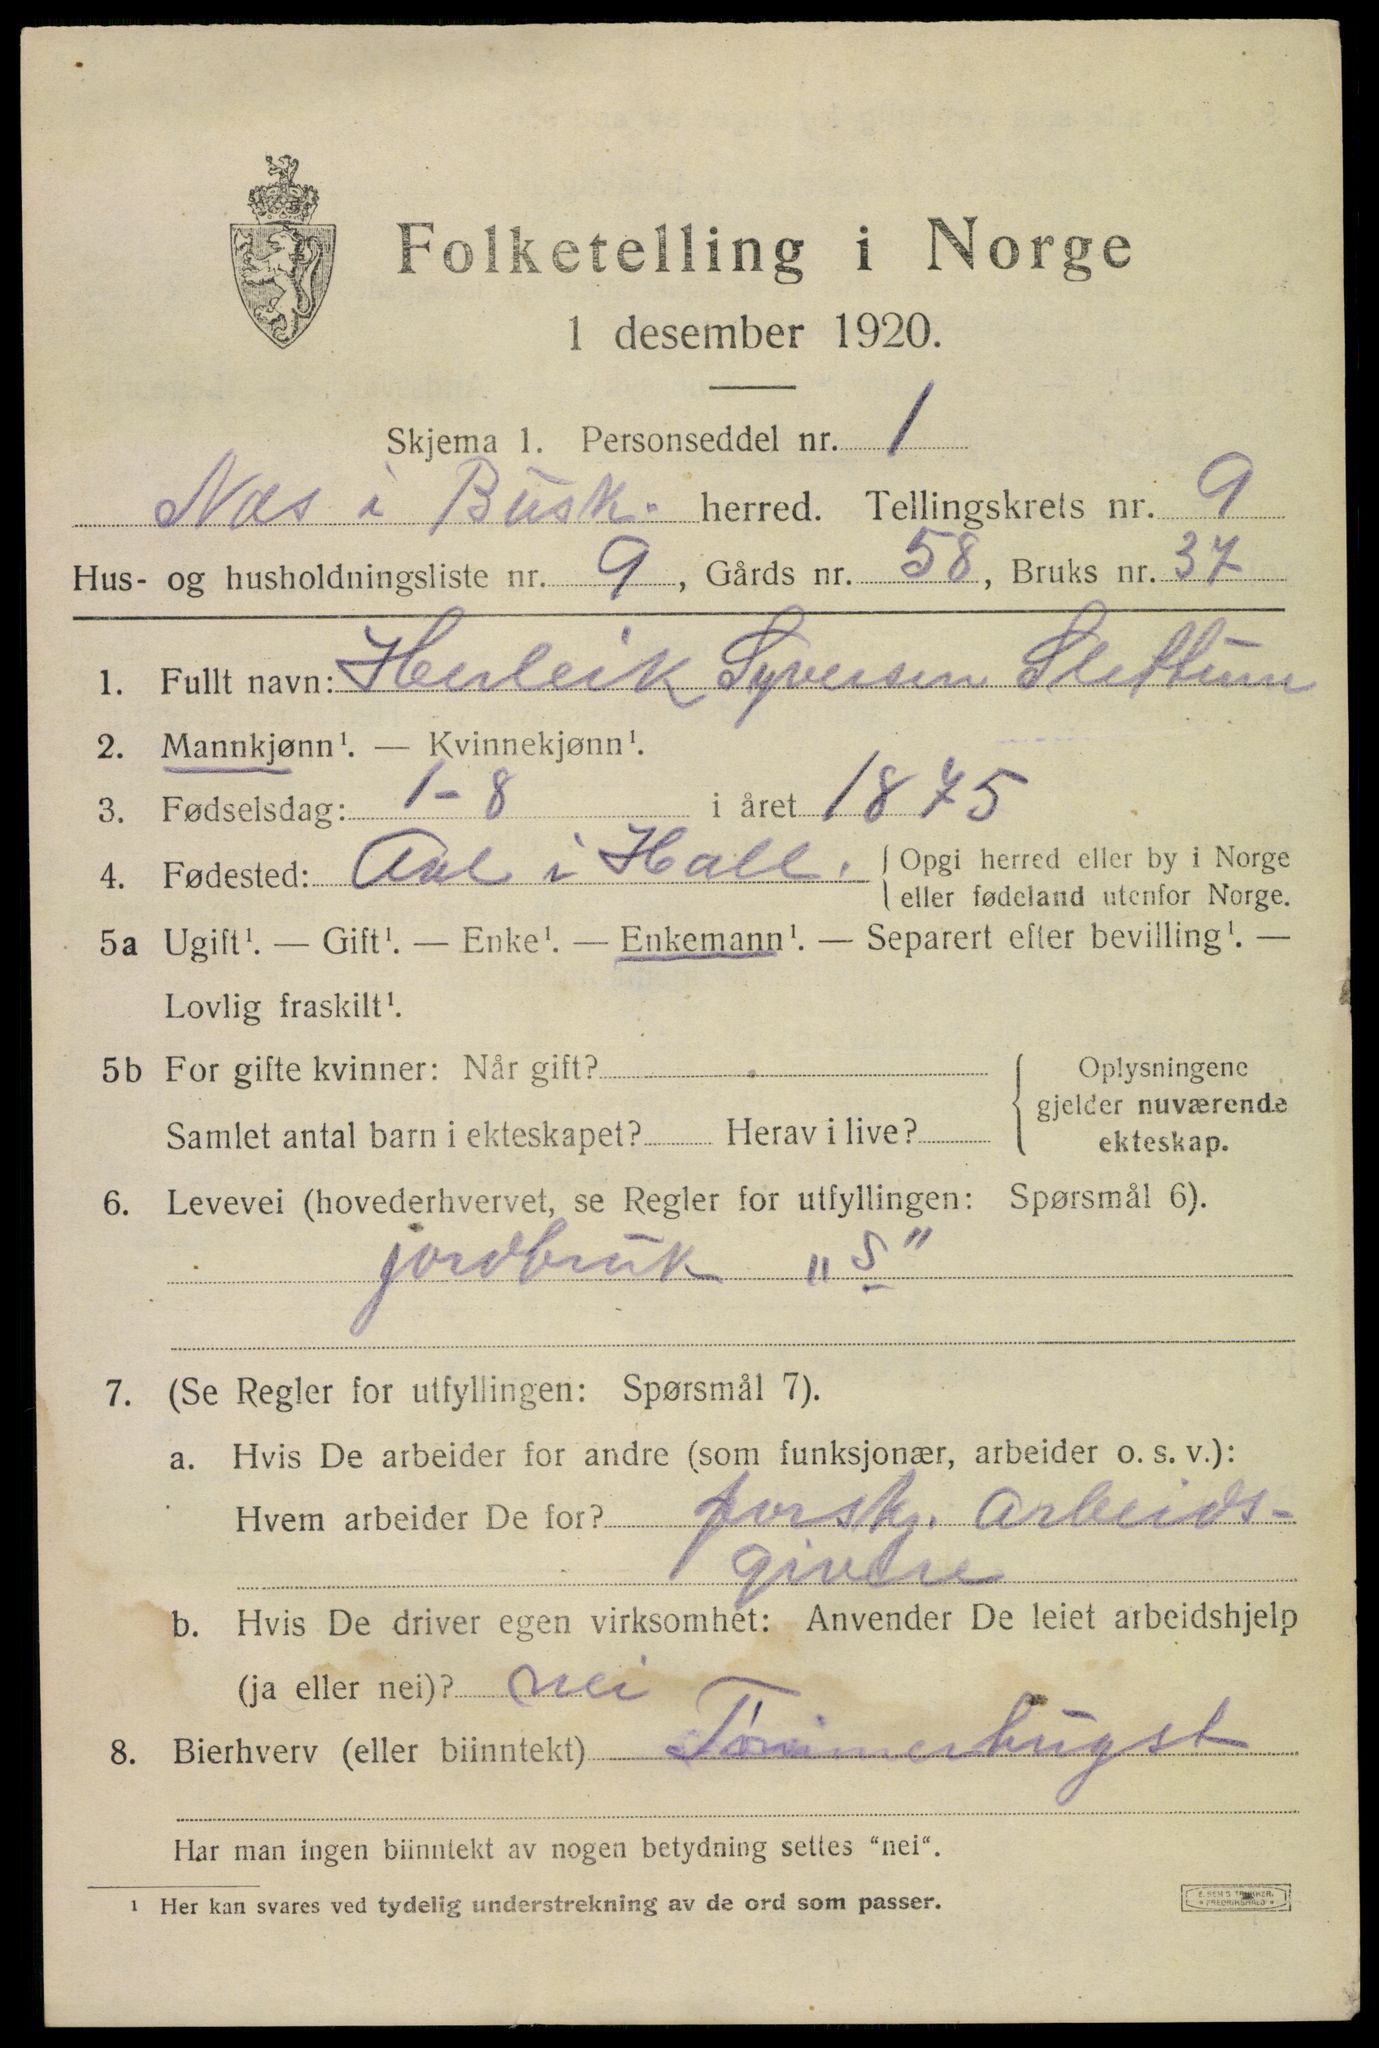 Folketelling i Norge
1 desember 1920.
Skjema 1. Personseddel nr. 1
Næs i Busk. herred. Tellingskrets nr. 9
Hus- og husholdningsliste nr. 9, Gårds nr. 58, Bruks nr. 37
1. Fullt navn: Herleik Syversen Slettum
2. Mannkjønn¹. — Kvinnekjønn¹.
3. Fødselsdag: 1-8 i året 1875
4. Fødested: Aal i Hall. Opgi herred eller by i Norge
eller fødeland utenfor Norge.
5a Ugift¹. — Gift¹. — Enke¹. — Enkemann¹. — Separert efter bevilling¹. —
Lovlig fraskilt¹.
5b For gifte kvinner: Når gift? Oplysningene
gjelder nuværende
Samlet antal barn i ekteskapet? Herav i live? ekteskap.
6. Levevei (hovederhvervet, se Regler for utfyllingen: Spørsmål 6).
jordbruk "S"
7. (Se Regler for utfyllingen: Spørsmål 7).
a. Hvis De arbeider for andre (som funksjonær, arbeider o. s. v.):
Hvem arbeider De for? forskj. Arbeids-
givere
b. Hvis De driver egen virksomhet: Anvender De leiet arbeidshjelp
(ja eller nei)? nei
8. Bierhverv (eller biinntekt) Tømmerhugst
Har man ingen biinntekt av nogen betydning settes "nei".
¹ Her kan svares ved tydelig understrekning av de ord som passer.